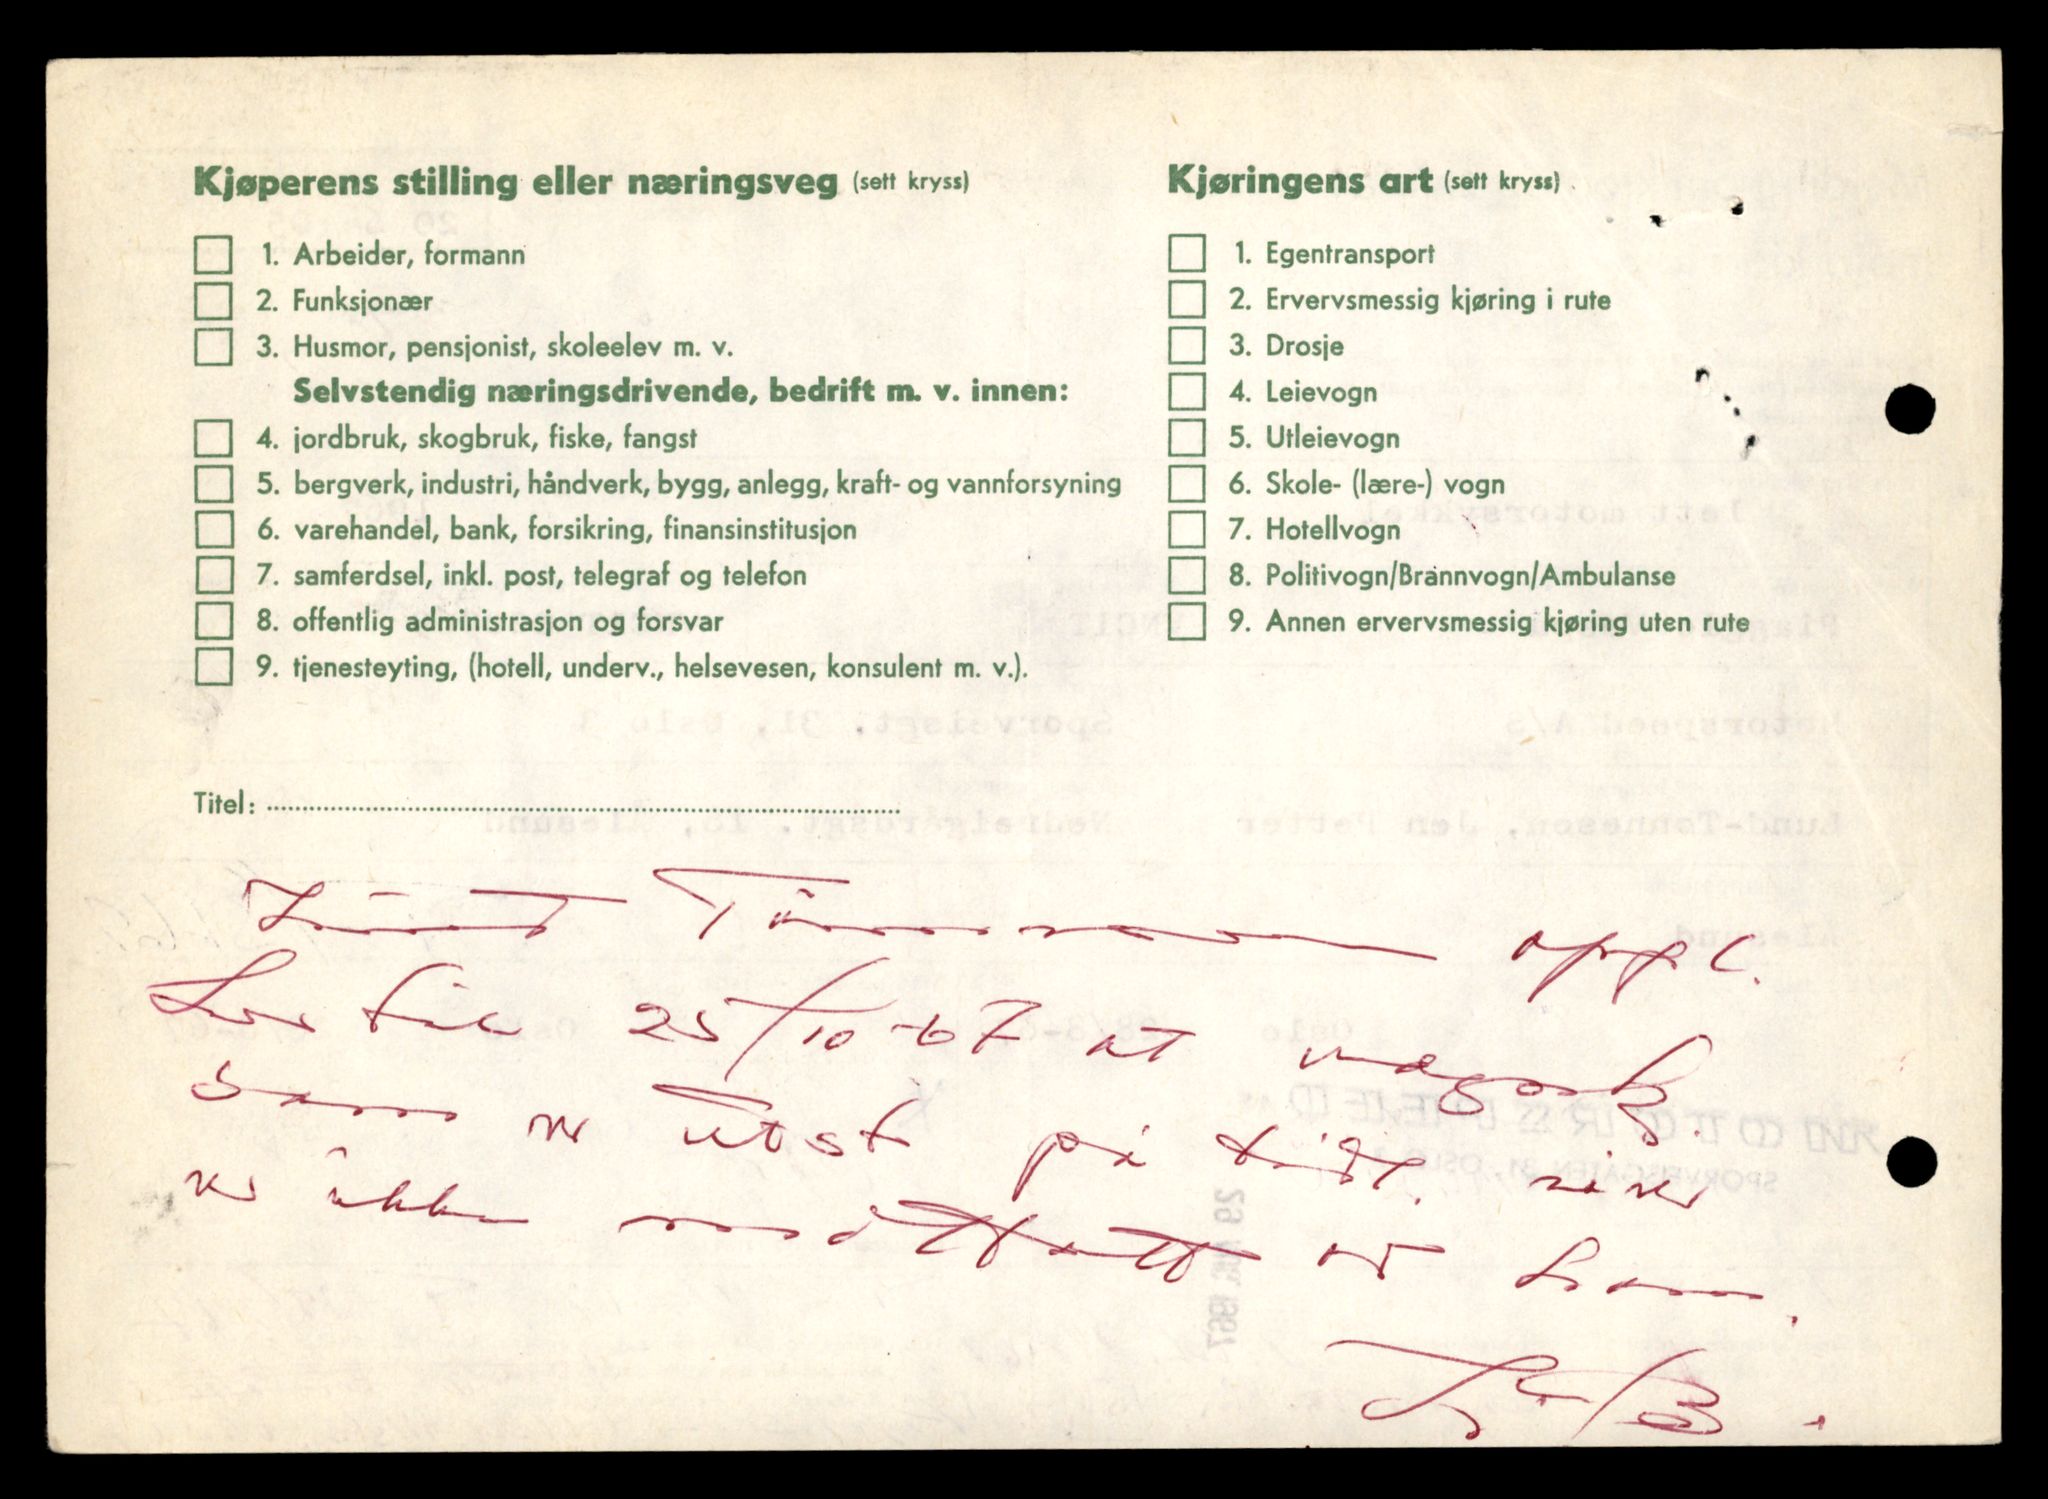 Kjøperens stilling eller næringsveg (sett kryss)
1. Arbeider, formann
2. Funksjonær
3. Husmor, pensjonist, skoleelev m. v.
Selvstendig næringsdrivende, bedrift m. v. innen:
4. jordbruk, skogbruk, fiske, fangst
5. bergverk, industri, håndverk, bygg, anlegg, kraft- og vannforsyning
6. varehandel, bank, forsikring, finansinstitusjon
7. samferdsel, inkl. post, telegraf og telefon
8. offentlig administrasjon og forsvar
9. tjenesteyting, (hotell, underv., helsevesen, konsulent m. v.).
Titel:
Kjøringens art (sett kryss)
1. Egentransport
2. Ervervsmessig kjøring i rute
3. Drosje
4. Leievogn
5. Utleievogn
6. Skole- (lære-) vogn
7. Hotellvogn
8. Politivogn/Brannvogn/Ambulanse
9. Annen ervervsmessig kjøring uten rute
Lund Tönnesen oppl.
her til 25/10-67 at vognk.
som er utst på tidl. eier
er ikke mottatt av ham.